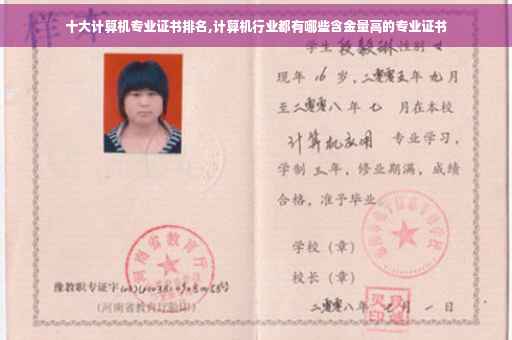 十大计算机专业证书排名,计算机行业都有哪些含金量高的专业证书
样本
学生段毅琳性别女
现年16岁,二零零五年九月
至二零零八年七月在本校
计算机应用 专业学习,
学制三年,修业期满,成绩
合格,准予毕业
学校(章)
校长(章)
二零零八年七月一日
河南省教育厅
豫教职专证字
(河南省教育厅验印)